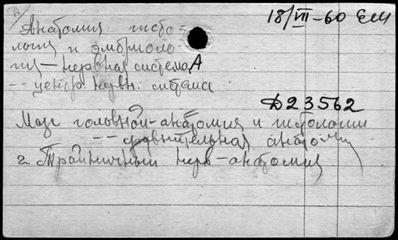 18/VII-60 Ели
Анатомия гисто-
логия и эмбриоло-
гия-нервная система А
-- центр. нервн. система
Д23562
Мозг головной-анатомия и гистология
-- сравнительная анатомия
2. Тройничный нерв-анатомия